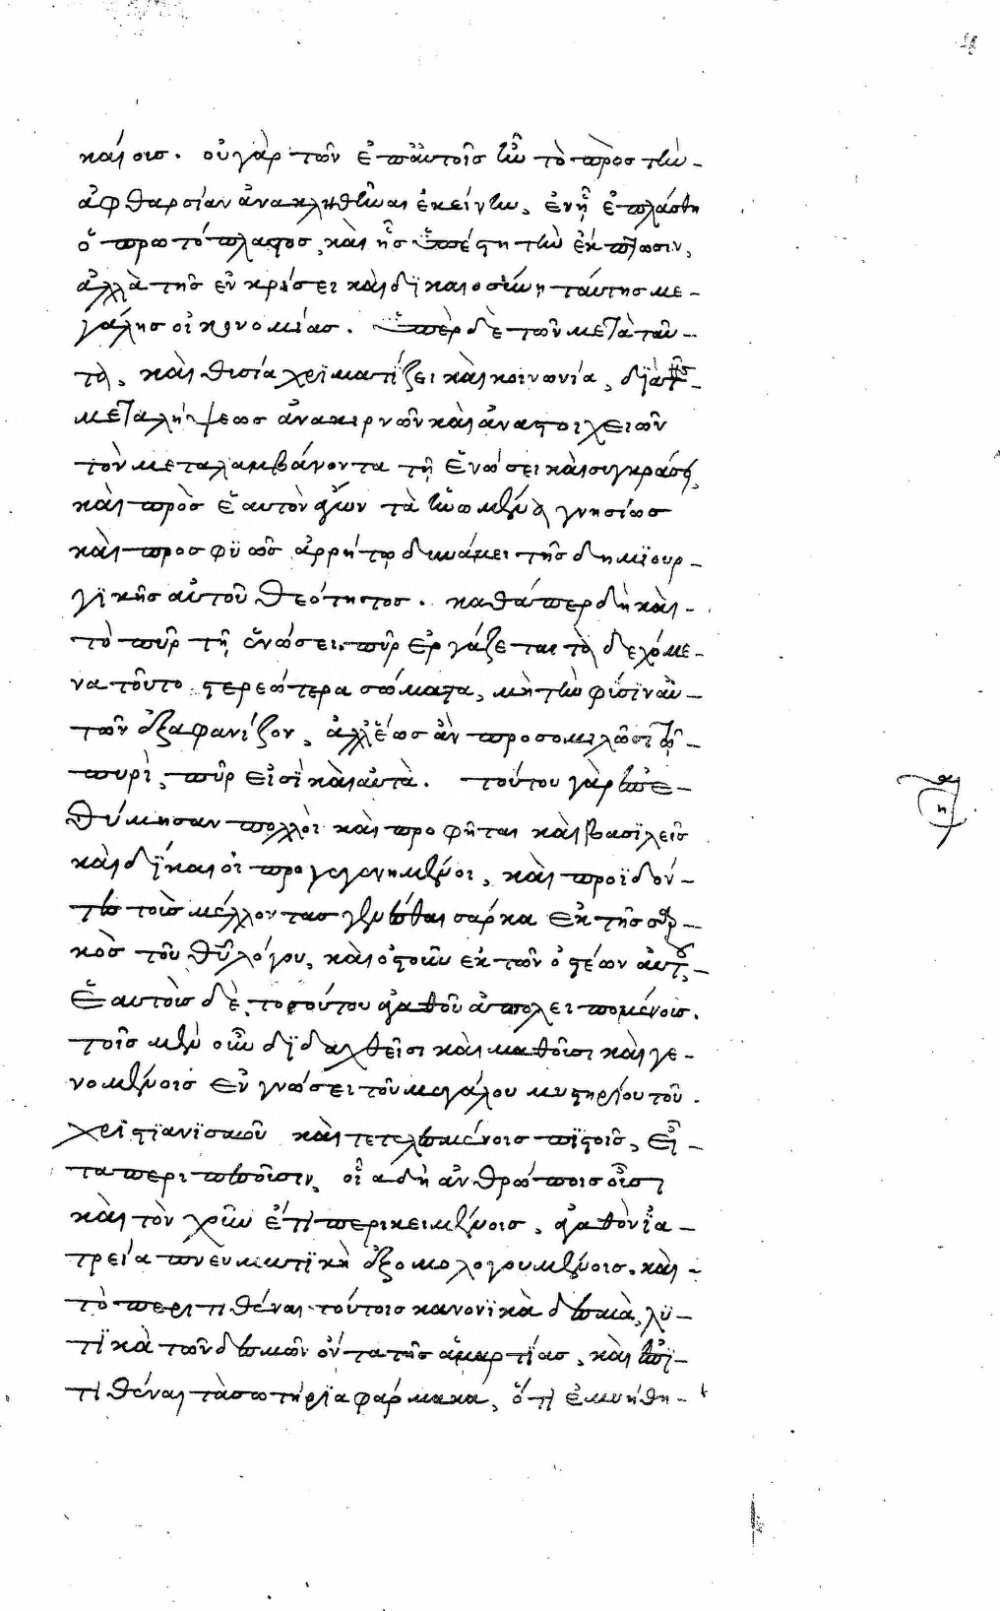 καίοις. οὐ γὰρ τῶν ἐπ' αὐτοῖς ἦν τὸ πρὸς τὴν
ἀφθαρσίαν ἀνακληθῆναι ἐκείνην, ἐν ᾗ ἐπλάσθη
ὁ πρωτόπλαστος, καὶ ἧς ὑπέστη τὴν ἔκπτωσιν,
ἀλλὰ τῆς ἐν κρίσει καὶ δϊκαιοσύνη ταύτης με-
γάλης οἰκονομίας. Ὑπὲρ δὲ τῶν μετὰ ταῦ-
τα, καὶ θυσία χρϊματίζει καὶ κοινωνία, δϊὰ τῆς
μεταλήψεως ἀνακιρνῶν καὶ ἀναστοιχειῶν
τὸν μεταλαμβάνοντα τῇ ἑνώσει καὶ συγκράσει,
καὶ πρὸς ἑαυτὸν ἄγων τὰ ἑνωμένα γνησίως
καὶ προσφϋῶς ἀρρήτῳ δυνάμει τῆς δημϊουρ-
γϊκῆς αὐτοῦ θεότητος. καθάπερ δὴ καὶ
τὸ πῦρ τῇ ἑνώσει πῦρ ἐργάζεται τὰ δεχόμε-
να τοῦτο στερεώτερα σώματα, μὴ τὴν φύσϊν αὐ-
τῶν ἐξαφανίζον, ἀλλ' ἕως ἂν προσομιλῶσι τῷ
πυρὶ, πῦρ εἰσὶ καὶ αὐτὰ. τούτου γὰρ ἐπε-
θύμησαν πολλοὶ καὶ προφῆται καὶ βασϊλεῖς
καὶ δίκαιοι προγεγενημένοι, καὶ προϊδόν-
τες τοῖς μέλλοντας γενέσθαι σάρκα ἐκ τῆς σαρ-
κὸς τοῦ θυ λόγου, καὶ ὀστοῦν ἐκ τῶν ὀστέων αὐτοῦ,
ἑαυτοῖς δὲ τοσούτου ἀγαθοῦ ἀπολειπομένοις.
τοῖς μὲν οὖν δϊδαχθεῖσι καὶ μαθοῦσι καὶ γε-
νομένοις ἐν γνώσει τοῦ μεγάλου μυστηρίου τοῦ
χριστϊανϊσμοῦ καὶ τετελεσμένοις πϊστοῖς, εἶ-
τα περιπεσοῦσιν, οἷα δὴ ἀνθρώποις οὖσι
καὶ τὸν χοῦν ἔτι περικειμένοις, ἀγαθὸν ἰα-
τρεία πνευματϊκὴ ἐξομολογουμένοις. καὶ
τὸ περιτιθέναι τούτοις κανονϊκὰ δεσμὰ, λϋ-
τϊκὰ τῶν δεσμῶν ὄντα τῆς ἁμαρτίας, καὶ ἐπϊ-
τιθέναι τὰ σωτήρϊα φάρμακα, ὅτι ἐμνήθη-